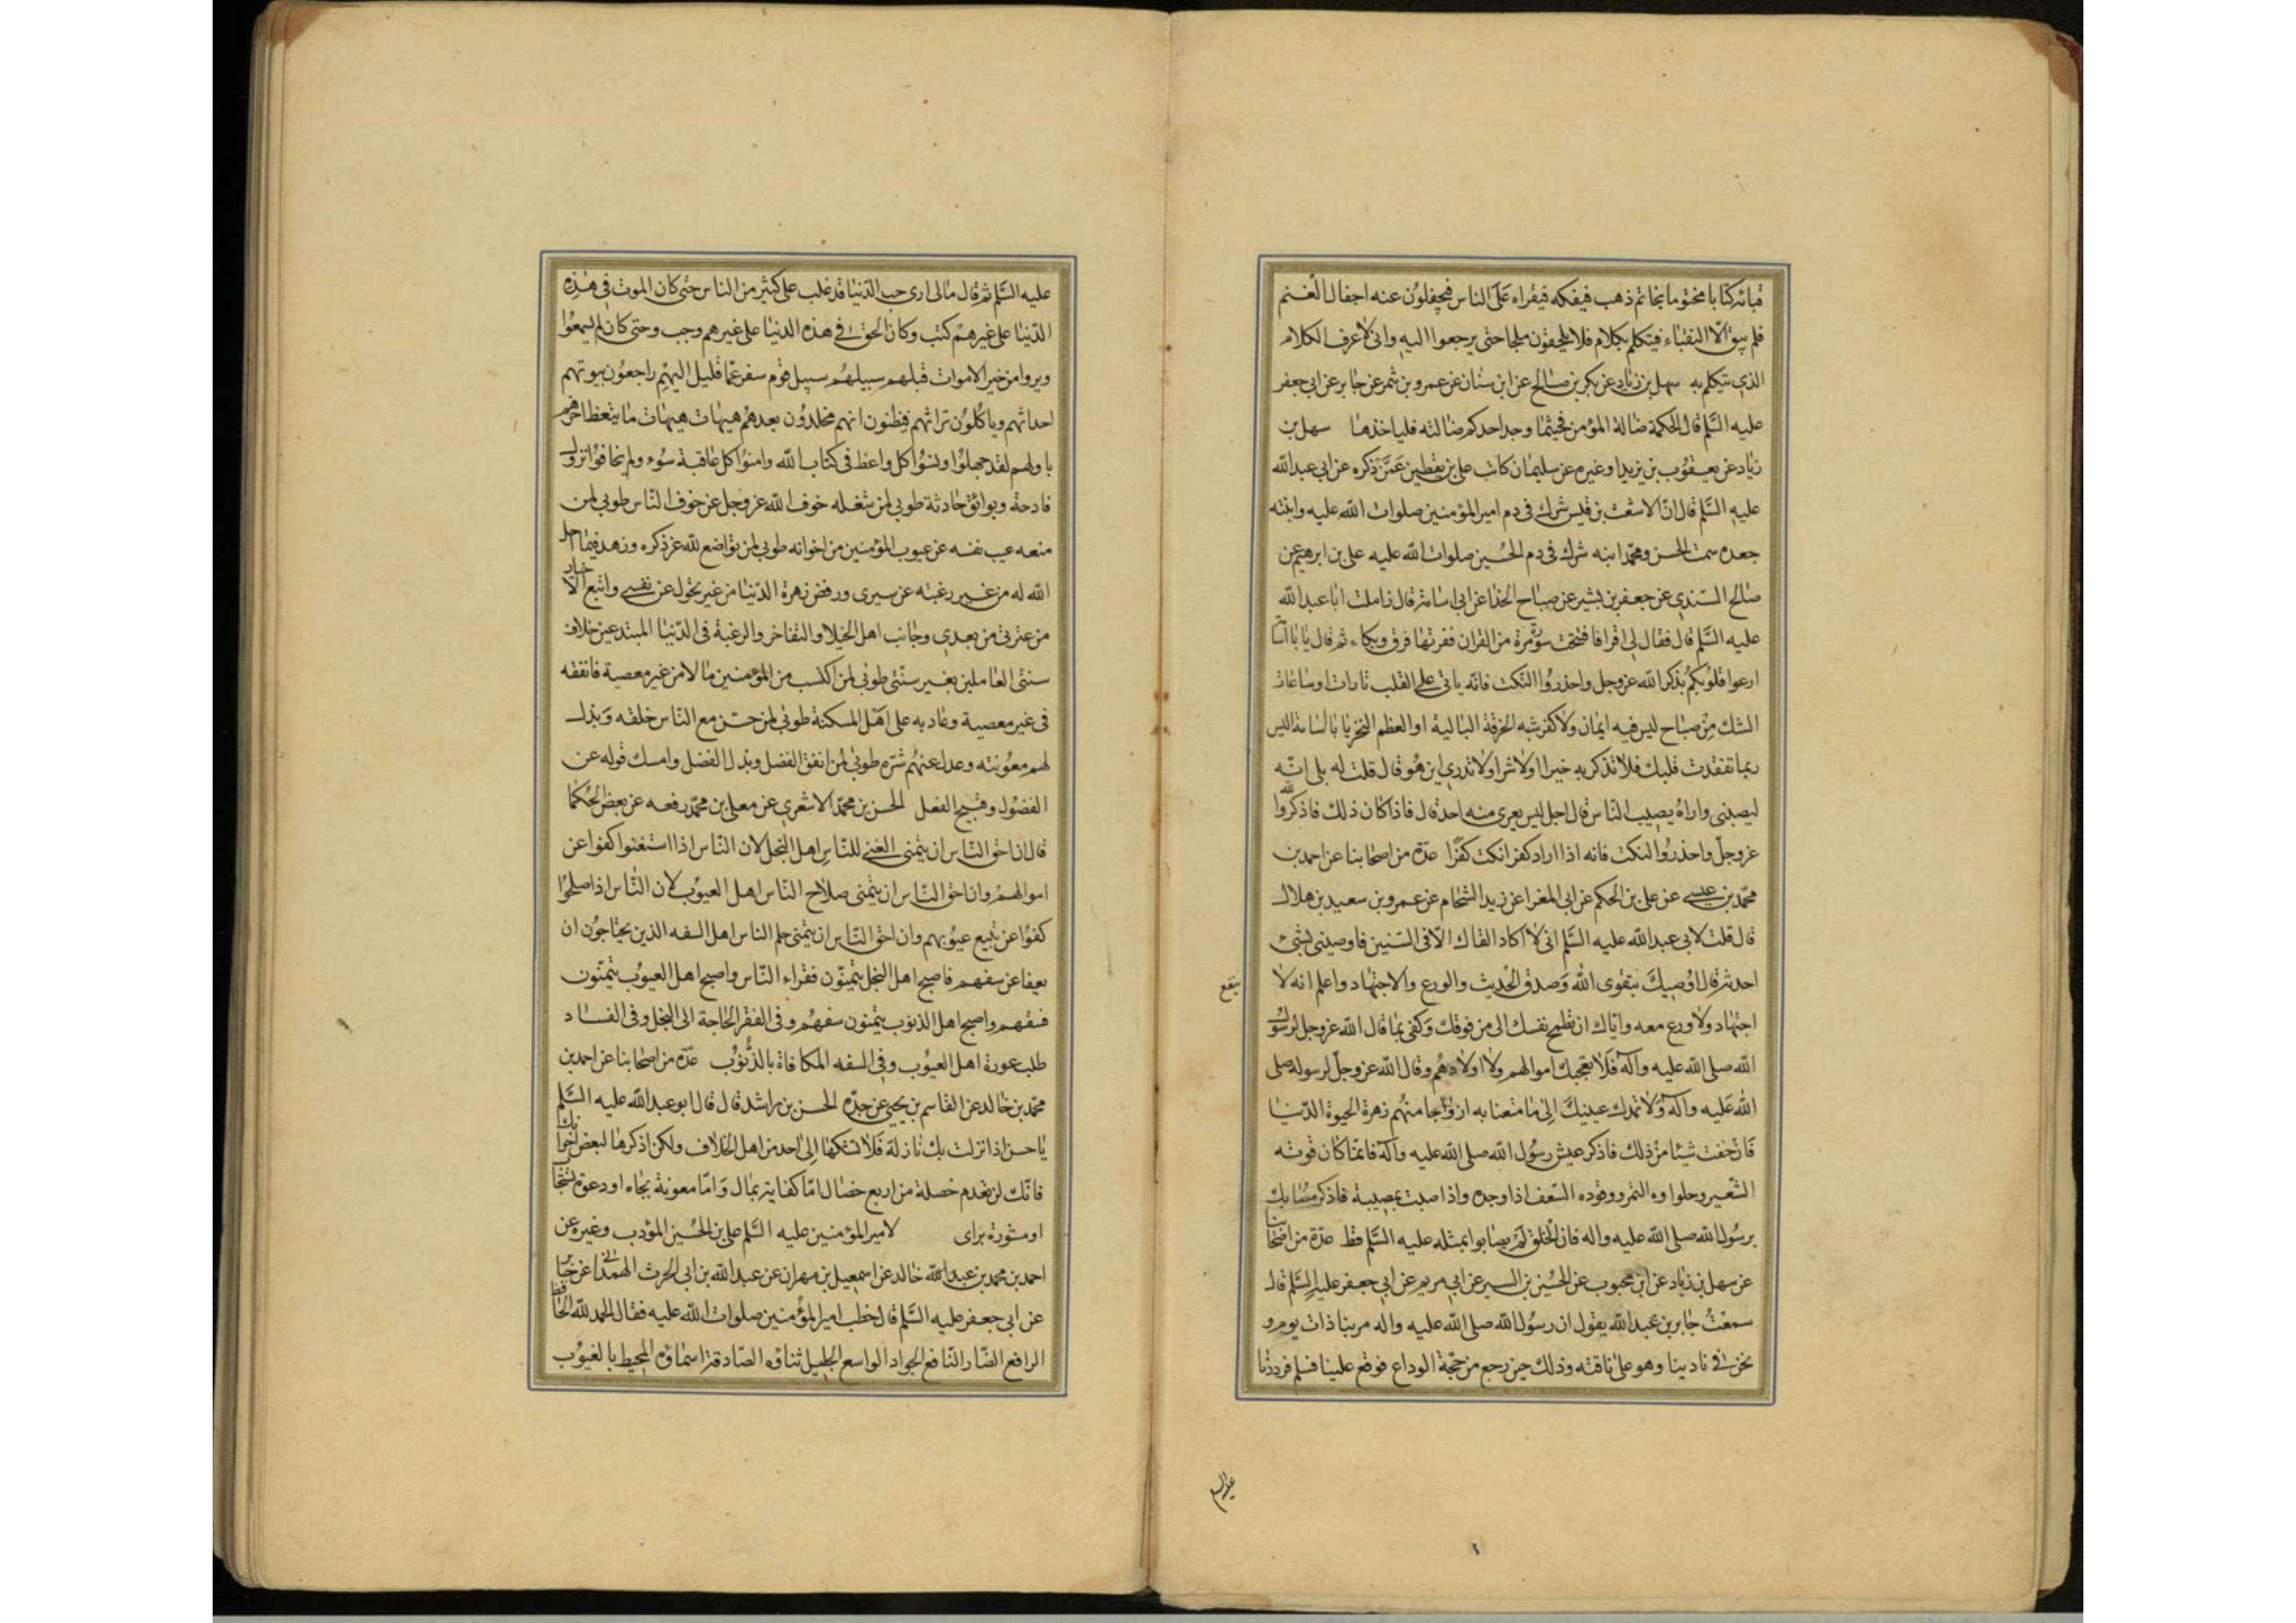 قباثه كتابا مختوما بخاتم ذهب فيفكه فيقراه على الناس فيجفلون عنه اجفال الغنم
فلم يبق الا النقباء فيتكلم بكلام فلا يلحقون ملجا حتى يرجعوا اليه وانى لاعرف الكلام
الذى يتكلم به سهل بن زياد عن بكر بن صالح عن ابن سنان عن عمرو بن شمر عن جابر عن ابى جعفر
عليه السلم قال الحكمة ضالة المؤمن فحيثما وجد احدكم ضالته فلياخذها سهل بن
زياد عن يعقوب بن يزيد او غيره عن سليمان كاتب على بن يقطين عمن ذكره عن ابى عبد الله
عليه السلم قال ان الاشعث بن قيس شرك فى دم امير المؤمنين صلوات الله عليه وابنته
جعده سمت الحسن ومحمد ابنه شرك فى دم الحسين صلوات الله عليه على بن ابرهيم عن
صالح السندى عن جعفر بن بشير عن صباح الحذا عن ابى اسامة قال زاملت ابا عبد الله
عليه السلم قال فقال لى اقرا فافتتحت سورة من القران فقرئتها فرق وبكاء ثم قال يا با اسامة
ارعوا قلوبكم بذكر الله عز وجل واحذروا النكت فانه ياتى على القلب تارات او ساعات
الشك من صباح ليس فيه ايمان ولا كفر شبه الخرقة البالية او العظم النخر يا با اسامة اليس
ربما تفقدت قلبك فلا تذكر به خيرا ولا شرا ولا تدرى اين هو قال قلت له بلى انه
ليصيبنى واراه يصيب الناس قال اجل ليس يعرى منه احد قال فاذا كان ذلك فاذكروا الله
عز وجل واحذروا النكت فانه اذا اراد كفرا نكت كفرا عدة من اصحابنا عن احمد بن
محمد بن عيسى عن على بن الحكم عن ابى المغرا عن زيد الشحام عن عمرو بن سعيد بن هلال
قال قلت لابى عبد الله عليه السلم انى لا اكاد القاك الا فى السنين فاوصينى بشئ
احدثه قال اوصيك بتقوى الله وصدق الحديث والورع والاجتهاد واعلم انه لا ينفع
اجتهاد ولا ورع معه واياك ان تطمح نفسك الى من فوقك وكفى بما قال الله عز وجل لرسول
الله صلى الله عليه وآله فلا يعجبك اموالهم ولا اولادهم وقال الله عز وجل لرسوله صلى
الله عليه وآله ولا تمدن عينيك الى ما متعنا به ازواجا منهم زهرة الحيوة الدنيا
فان خفت شيئا من ذلك فاذكر عيش رسول الله صلى الله عليه وآله فانما كان قوته
الشعير وحلواوه التمر ووقوده السعف اذا وجده واذا اصبت بمصيبة فاذكر مصابك
برسول الله صلى الله عليه واله فان الخلق لم يصابوا بمثله عليه السلم قط عدة من اصحابنا
عن سهل بن زياد عن ابن محبوب عن الحسين بن السير عن ابى مريم عن ابى جعفر عليه السلم قال
سمعت جابر بن عبد الله يقول ان رسول الله صلى الله عليه واله مر بنا ذات يوم و
نحن فى نادينا وهو على ناقته وذلك حين رجع من حجة الوداع فوقع علينا فسلم فرددنا
عليه السلم
عليه السلم ثم قال مالى ارى حب الدنيا قد غلب على كثير من الناس حتى كان الموت فى هذه
الدنيا على غيرهم كتب وكان الحق فى هذه الدنيا على غيرهم وجب وحتى كان لم يسمعوا
ويروا من خير الاموات قبلهم سبيلهم سبيل قوم سفر عما قليل اليهم راجعون بيوتهم
اجداثهم وياكلون تراثهم فيظنون انهم مخلدون بعدهم هيهات هيهات ما يتعظ اخرهم
باولهم لقد جهلوا ونسوا كل واعظ فى كتاب الله وامنوا كل عاقبة سوء ولم يخافوا نزول
فادحة وبوائق حادثة طوبى لمن شغله خوف الله عز وجل عن خوف الناس طوبى لمن
منعه عيب نفسه عن عيوب المؤمنين من اخوانه طوبى لمن تواضع لله عز ذكره وزهد فيما احل
الله له من غير رغبته عن سيرى ورفض زهرة الدنيا من غير تحول عن نفسى واتبع الاخيار
من عترتى من بعدى وجانب اهل الخيلا والتفاخر والرغبة فى الدنيا المبتدعين خلاف
سنتى العاملين بغير سنتى طوبى لمن اكتسب من المؤمنين مالا من غير معصية فانفقه
فى غير معصية وعاد به على اهل المسكنة طوبى لمن حسن مع الناس خلقه وبذل
لهم معونته وعدل عنهم شره طوبى لمن انفق الفضل وبذل الفضل وامسك قوله عن
الفضول وقبيح الفعل الحسن بن محمد الاشعرى عن معلى بن محمد رفعه عن بعض الحكما
قال ان احق الناس ان يتمنى الغنى للناس اهل البخل لان الناس اذا استغنوا كفوا عن
اموالهم وان احق الناس ان يتمنى صلاح الناس اهل العيوب لان الناس اذا صلحوا
كفوا عن تتبع عيوبهم وان احق الناس ان يتمنى حلم الناس اهل السفه الذين يحتاجون ان
يعفا عن سفههم فاصبح اهل البخل يتمنون فقراء الناس واصبح اهل العيوب يتمنون
فسقهم واصبح اهل الذنوب يتمنون سفههم وفى الفقر الحاجة الى البخل وفى الفساد
طلب عورة اهل العيوب وفى السفه المكافاة بالذنوب عدة من اصحابنا عن احمد بن
محمد بن خالد عن القاسم بن يحيى عن جده الحسن بن راشد قال قال ابو عبد الله عليه السلم
يا حسن اذا نزلت بك نازلة فلا تشكها الى احد من اهل الخلاف ولكن اذكرها لبعض اخوانك
فانك لن تعدم خصلة من اربع خصال اما كفاية بمال واما معونة بجاه او دعوة تستجاب
او مشورة براى لامير المؤمنين عليه السلم على بن الحسين المؤدب وغيره عن
احمد بن محمد بن عبد الله خالد عن اسمعيل بن مهران عن عبد الله بن ابى الحرث الهمدانى عن جابر
عن ابى جعفر عليه السلم قال خطب امير المؤمنين صلوات الله عليه فقال الحمد لله الخافظ
الرافع الضار النافع الجواد الواسع الجليل ثناؤه الصادقة اسماؤه المحيط بالغيوب